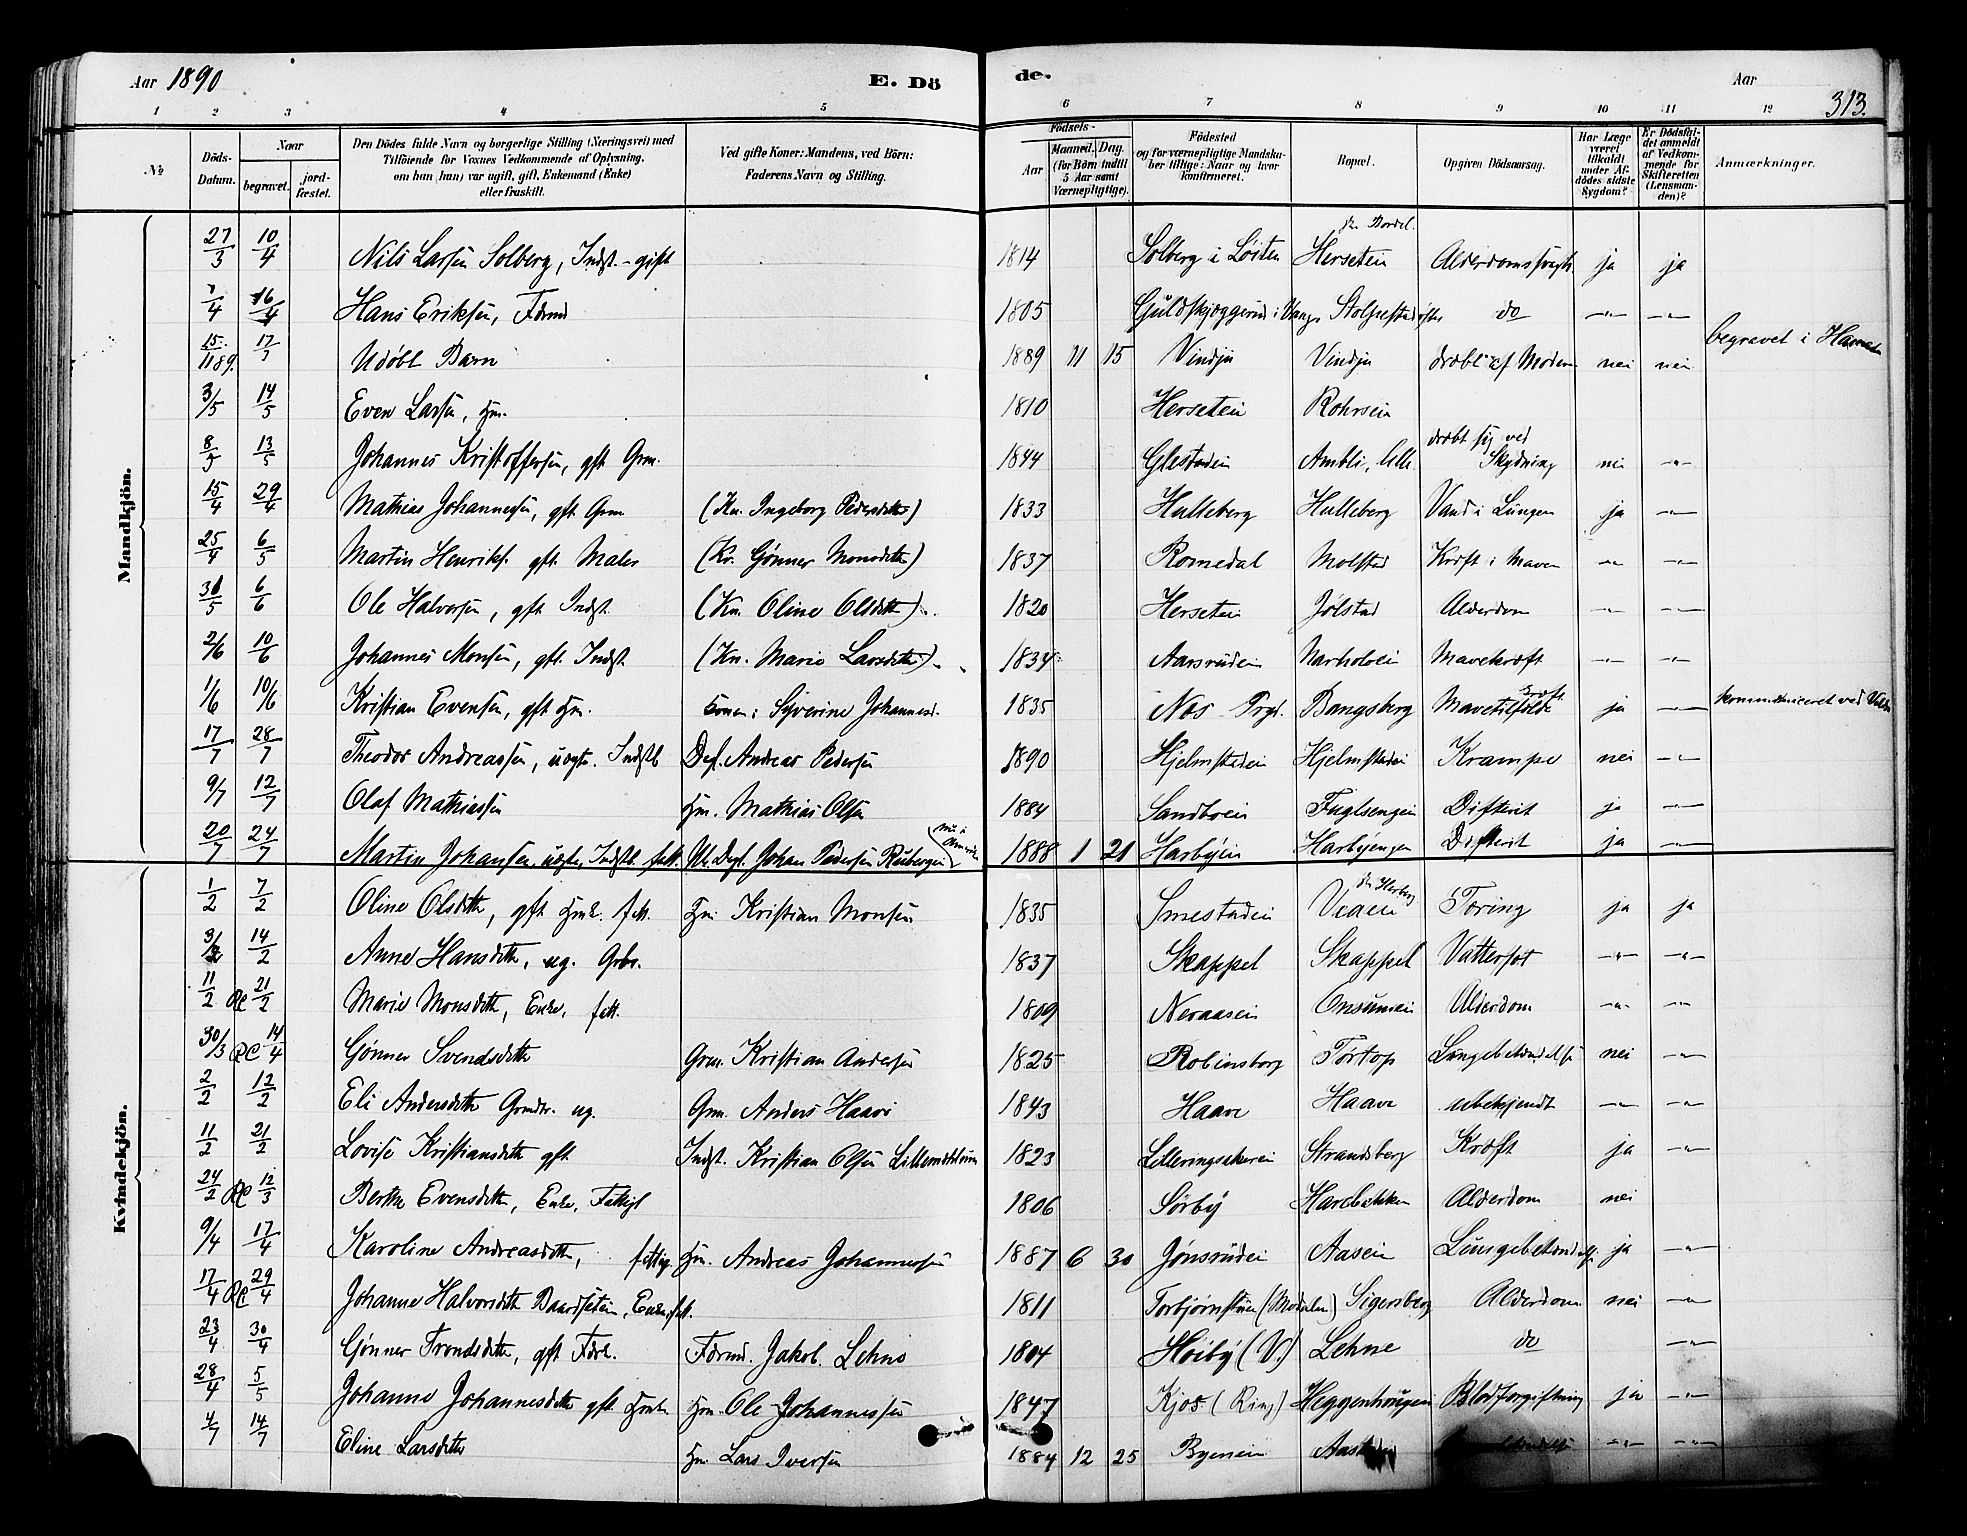 Aar 1890 E. Dö de. Aar 313.
1 2 3 4 5 6 7 8 9 10 11 12
№ Döds-Datum. Naar begravet. jordfæstet. Den Dödes fulde Navn og borgerlige Stilling (Næringsvei) med Tilföiende for Voxnes Vedkommende af Oplysning, om han (hun) var ugift, gift, Enkemand (Enke) eller fraskilt. Ved gifte Koner: Mandens, ved Börn: Faderens Navn og Stilling. Födsels- Aar Maaned. Dag. (for Börn indtil 5 Aar samt Værnepligtige). Födested og for værnepligtige Mandskaber tillige: Naar og hvor konfirmeret. Bopæl. Opgiven Dödsaarsag. Har Læge været tilkaldt under Afdödes sidste Sygdom? Er Dödsfaldet anmeldt af Vedkommende for Skifteretten (Lensmanden)? Anmærkninger.
Mandkjön.
27/3 10/4 Nils Larsen Solberg, Indst. - gift 1814 Solberg i Löiten Herseten Alderdomssvagh. ja ja
/4 16/4 Hans Eriksen, Födrd 1805 i Vang do -"- -"-
15/11 89. 17/ Udöbt Barn 1889 11 15 Vindju Vindju dræbt af Moderen nei nei begravet i Hamar
3/5 14/5 Even Larsen, Hm. 1810 Herseten
8/5 13/5 Johannes Kristoffersen, gft Grm. 1844 Glestadein Ambli, lille dræbt sig ved Skydning nei -"-
15/4 29/4 Mathias Johannessen, gft. Grm (Kn. Ingeborg Pedersdatter) 1833 Hulleberg Hulleberg Vand i Lungen ja -"-
25/4 6/5 Martin Henriks. gft. Maler (Kv. Gönner Monsdtr) 1837 Romedal Molstad Kræft i Maven -"- -"-
31/5 6/6 Ole Halvorsen, gft Indst. (Kn. Oline Olsdtr) 1820 Herseten Jölstad Alderdom -"- -"-
2/6 10/6 Johannes Monsen, gft. Indst. (Kn. Marie Larsdtr) 1834 Aarsrudein Mavekræft -"- -"-
1/6 10/6 Kristian Evensen, gft Hm. Konen: Syverine Johannesd. 1835 Nes Prgd. Bangsberg ja -"- kommuniceret ved
17/7 28/7 Theodor Andreassen, uægte. Indstb Def. Andreas Pedersen 1890 Hjelmstadein Hjelmstadei Krampe nei -"-
9/7 12/7 Olaf Mathiassen Hm. Mathias Olsen 1884 Sandboein Fuglsengen Difterit j -"-
20/7 24/7 Martin Johansen, uægte, Indstb. fatt. Johan Pedersen (nu i Amerika) 1888 1 21 Harbyein Harbyengen Difterit ja -"-
Kvindekjön.
1/2 7/2 Oline Olsdtr, gft Hmk. fatt. Hm. Kristian Monsen 1835 Smestadein Tæring ja ja
3/2 14/2 Anne Hansdtr, ug. Grbr. 1837 Skappel Skappel Vattersot -"- -"-
11/2 RC 21/2 Marie Monsdtr, Enke, fatt. 1809 Neraasein Onsumein Alderdom -"- -"-
30/3 RC 14/4 Gönner Svendsdtr Grm. Kristian Andersen 1825 Robinsborg Törtop Lungebetændelse nei -"-
2/2 12/2 Eli Andersdtr Grmdtr. ug. Grm. Anders Haave 1843 Haave Haave ubekjendt -"- -"-
11/2 21/2 Lovise Kristiansdtr gft Indst. Kristian Olsen 1823 Lilleringsakerein Strandsberg Kræft ja -"-
24/2 RC 12/3 Berthe Evensdtr, Enke, Fattigl 1806 Sörby Harebakken Alderdom nei
9/4 17/4 Karoline Andreasdtr, fattig Hm. Andreas Johannessen 1887 6 30 Jönsrudein Aasein Lungebetændelse ja -"-
17/4 RC 29/4 Johanne Halvorsdtr Baardseten, Enke, fatt. 1811 Torbjörnstuen (Modalen) Sigersberg Alderdom nei -"-
23/4 30/4 Gönner Trondsdtr, gft Födrk. Födrmd. Jakob Lehne 1804 Höiby (V.) Lehne do -"-
28/4 5/5 Johanne Johannesdtr gft Hmk Hm. Ole Johannessen 1847 Kjos (Ring) Heggenhougen Blodforgiftning ja -"-
4/7 14/7 Eline Larsdtr Hm. Lars Iversen 1884 12 25 Byenein -"- -"-